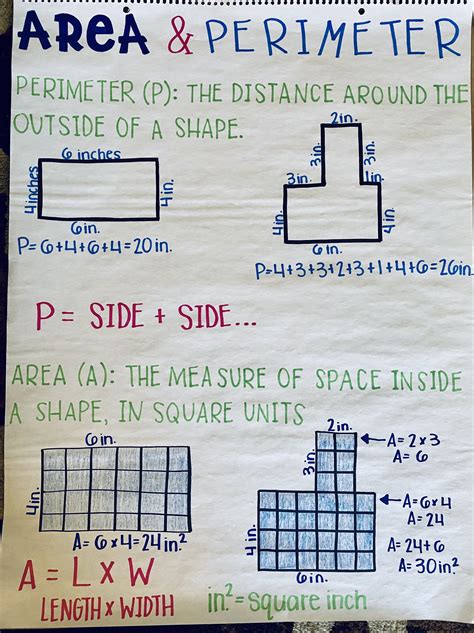 AREA & PERIMETER
PERIMETER (P): THE DISTANCE AROUND THE
OUTSIDE OF A SHAPE.
6 inches
4 inches
4in.
6in.
P=6+4+6+4=20in.
2in.
3in.
3in.
3in.
1in.
4in.
4in.
6in.
P=4+3+3+2+3+1+4+6=26in.
P = SIDE + SIDE...
AREA (A): THE MEASURE OF SPACE INSIDE
A SHAPE, IN SQUARE UNITS
6in.
4in.
A= 6x4=24in.²
A = L X W
LENGTH x WIDTH
2in.
3in.
A= 2x3
A= 6
4in.
6in.
A=6x4
A= 24
A= 24+6
A= 30in.²
in.²=square inch